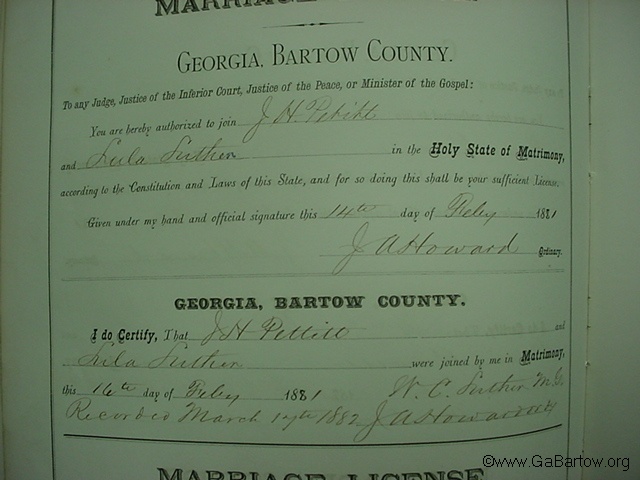 MARRIAGE LICENSE
GEORGIA, BARTOW COUNTY.
To any Judge, Justice of the Inferior Court, Justice of the Peace, or Minister of the Gospel:
You are hereby authorized to join J H Pettitt
and Lula Suther in the Holy State of Matrimony,
according to the Constitution and Laws of this State, and for so doing this shall be your sufficient License.
Given under my hand and official signature this 14th day of Feby 1881
J A Howard Ordinary.
GEORGIA, BARTOW COUNTY.
I do Certify, That J H Pettitt and
Lula Suther were joined by me in Matrimony,
this 16th day of Feby 1881 W. C. Suther M.G.
Recorded March 1882 J A Howard
MARRIAGE LICENSE
©www.GaBartow.org